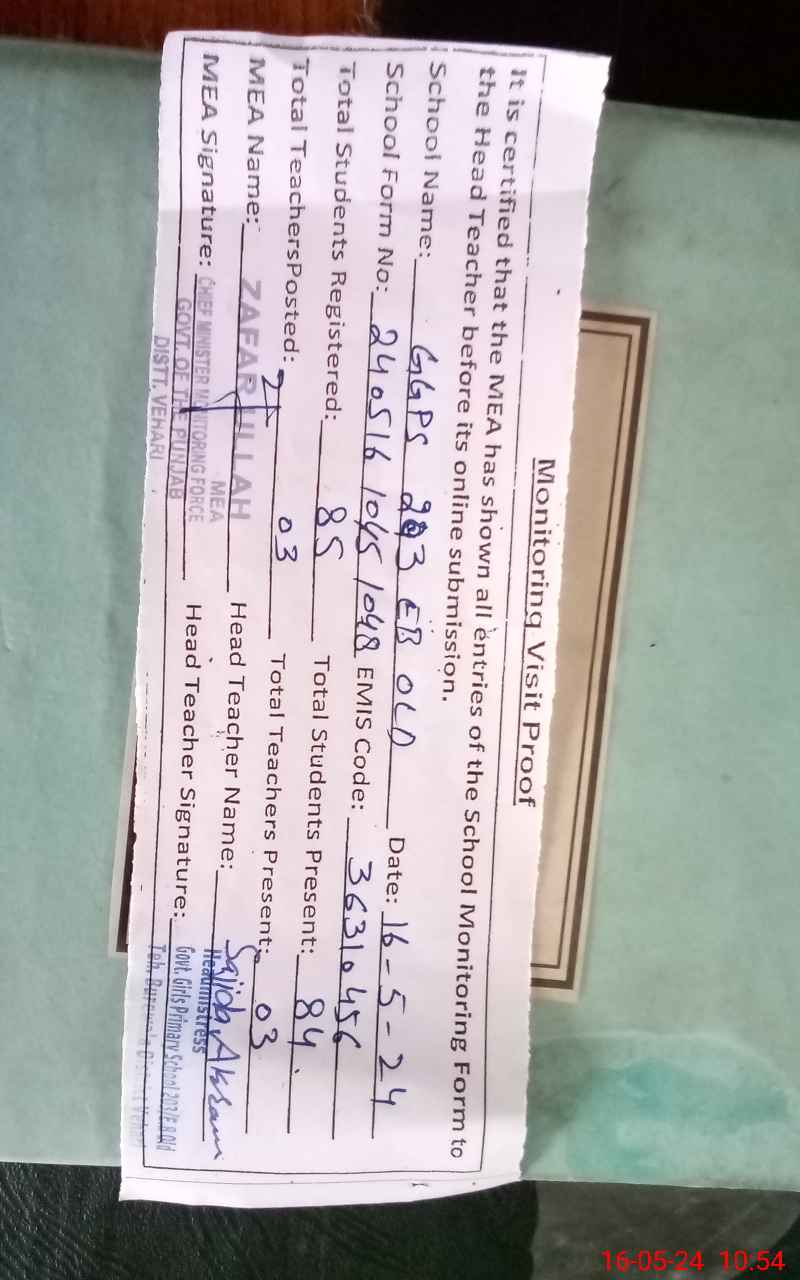 Monitoring Visit Proof
It is certified that the MEA has shown all entries of the School Monitoring Form to
the Head Teacher before its online submission.
School Name: GGPS 203 EB OLD Date: 16-5-24
School Form No: 240516 1045 1048 EMIS Code: 36310456
Total Students Registered: 85 Total Students Present: 84
Total TeachersPosted: 03 Total Teachers Present: 03
MEA Name: ZAFAR ULLAH Head Teacher Name: Sajida Akram
MEA
Headmistress
MEA Signature: CHIEF MINISTER MONITORING FORCE Head Teacher Signature: Govt. Girls Primary School 203/E.B Old
GOVT. OF THE PUNJAB
DISTT. VEHARI
Teh. Burewala District Vehari
16-05-24 10:54